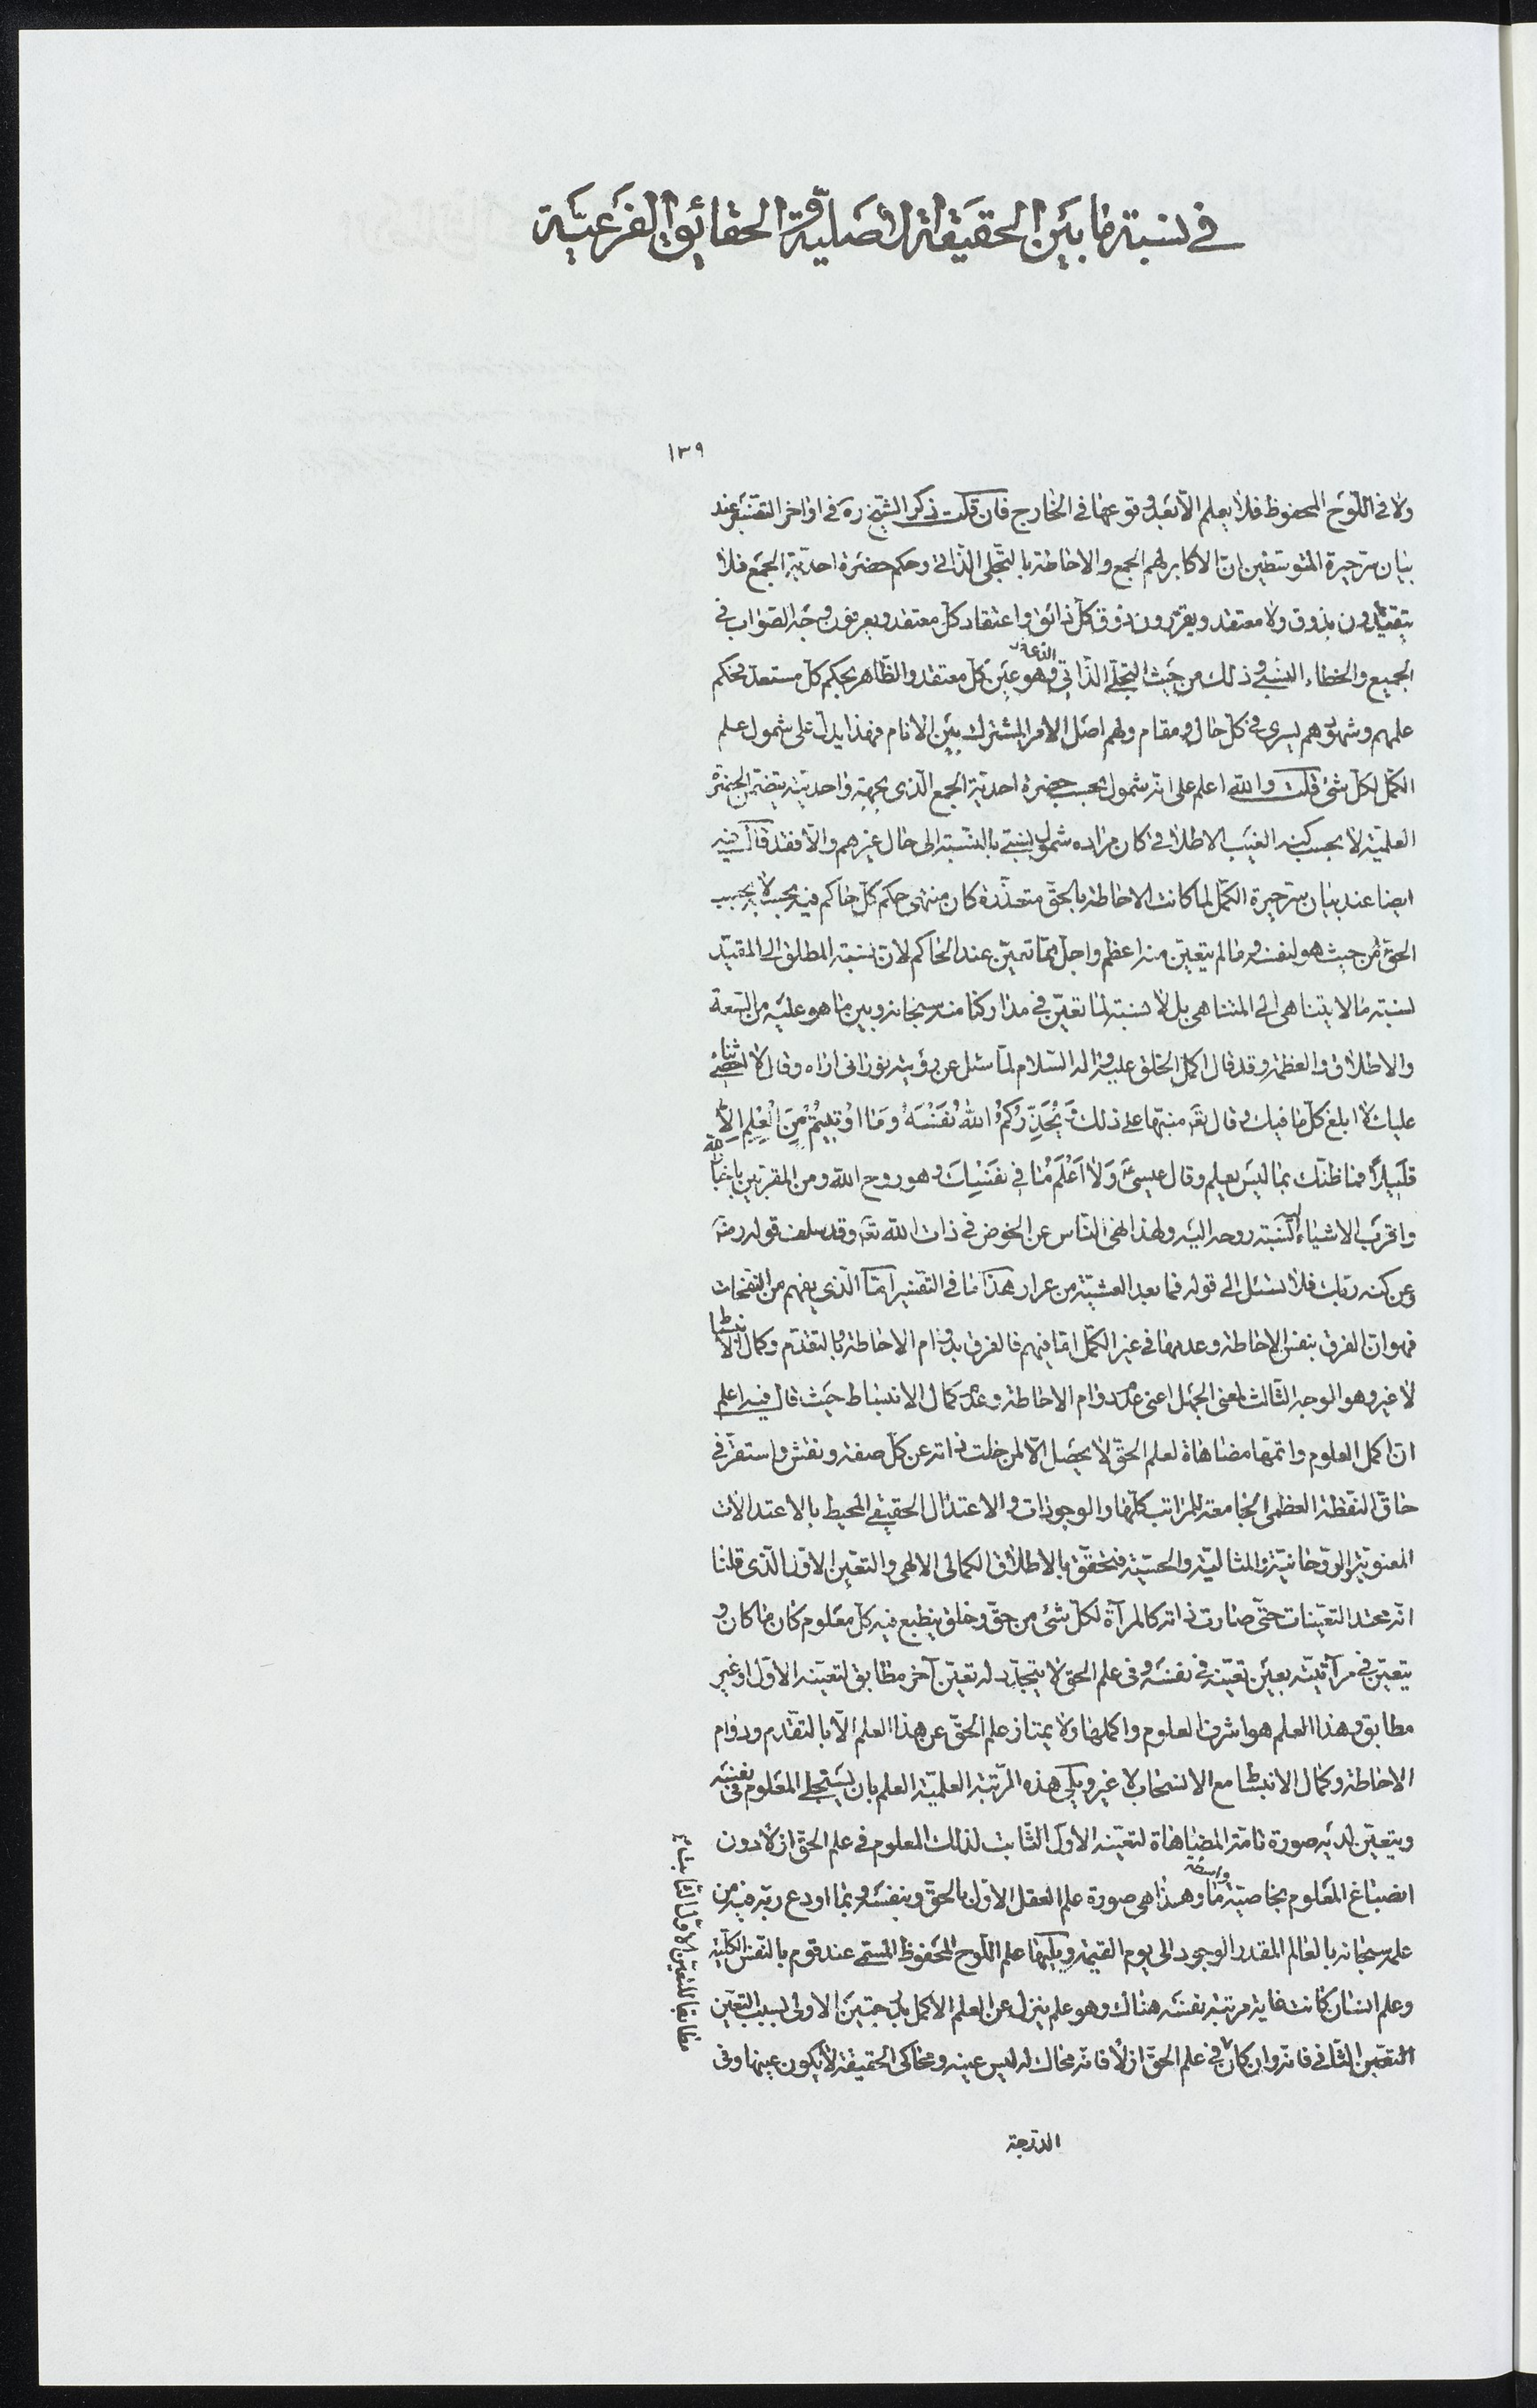 في نسبة ما بين الحقيقة الاصليّة و الحقائق الفرعيّة
١٣٩
ولا في اللّوح المحفوظ فلا يعلم الّا بعد وقوعها في الخارج فان قلت ذكر الشّيخ ره في اواخر التّفسير عند
بيان سرّ حيرة المتوسّطين انّ الاكابر لهم الجمع والاحاطة بالتّجلّي الذّاتي وحكم حضرة احديّة الجمع فلا
يتقيّدون بذوق ولا معتقد ويقرّرون ذوق كلّ ذائق واعتقاد كلّ معتقد ويعرفون وجه الصّواب في
الجميع والخطاء النّسبي وذلك من حيث التّجلّي الذّاتي الّذي هو عين كلّ معتقد والظّاهر بحكم كلّ مستعد فحكم
علمهم وشهودهم يسري في كلّ حال ومقام ولهم اصل الامر المشترك بين الانام فهذا يدلّ على شمول علم
الكمّل لكلّ شئ قلت والله اعلم على انّه شمول بحسب حضرة احديّة الجمع الّذي بجهة واحديّته يتضمّن الحضرة
العلميّة لا بحسب كنه الغيب الاطلاقي او كان مراده شمول نسبيّ بالنّسبة الى حال غيرهم والّا فقد قال فيه
ايضا عند بيان سرّ حيرة الكمّل لما كانت الاحاطة بالحقّ متعذّرة كان منتهى حكم كلّ حاكم فيه بحسبه لا بحسب
الحقّ من حيث هو لنفسه وما لم يتعيّن منه اعظم واجلّ ممّا تعيّن عند الحاكم لانّ نسبة المطلق الى المقيّد
نسبة ما لا يتناهى الى المتناهي بل لا نسبة لما تعيّن في مداركنا منه سبحانه وبين ما هو عليه من السّعة
والاطلاق والعظمة وقد قال اكمل الخلق عليه واله السّلام لمّا سئل عن رؤيته نورانى اراه وقال لا احصى ثناء
عليك لا ابلغ كلّ ما فيك وقال تعه منبّها على ذلك وَيُحَذِّرُكُمُ اللهُ نَفْسَهُ وَمَا اُوتِيتُمْ مِنَ الْعِلْمِ اِلَّا
قَلِيلًا فما ظنّك بما ليس بعلم وقال عيسى ع وَلَا اَعْلَمُ مَا فِي نَفْسِكَ وهو روح الله ومن المقرّبين باخبار الله
واقرب الاشياء نسبة روحه اليه ولهذا نهى النّاس عن الخوض في ذات الله تعه وقد سلف قوله رضه
وعن كنه ربّك فلا تسئل الى قوله فما بعد العشيّة من عرار هذا ما في التّفسير امّا الّذي يفهم من النّفحات
فهو انّ الفرق بنفس الاحاطة وعدمها في غير الكمّل امّا فيهم فالفرق بدوام الاحاطة وبالتقدّم وكمال الانبساط
لا غير وهو الوجه الثّالث لمعنى الجهل اعنى عدم دوام الاحاطة وعدم كمال الانبساط حيث قال فيه اعلم
انّ اكمل العلوم واتمّها مضاهاة لعلم الحقّ لا يحصل الّا لمن خلت ذاته عن كلّ صفة ونقش واستقرّ في
حاقّ النّقطة العظمى الجامعة للمراتب كلّها والوجودات والاعتدال الحقيقي المحيط بالاعتدالات
المعنويّة والرّوحانيّة والمثاليّة والحسيّة فتحقّق بالاطلاق الكمالي الالهى والتعيّن الاوّل الّذي قلنا
انّه محتد التعيّنات حتّى صارت ذاته كالمرآة لكلّ شئ من حقّ وخلق ينطبع فيه كلّ معلوم كان ما كان و
يتعيّن في مرآتيّته بعين تعيّنه في نفسه وفي علم الحق لا يتجدّد له تعيّن آخر مطابق لتعيّنه الاوّل او غير
مطابق وهذا العلم هو اشرف العلوم واكملها ولا يمتاز علم الحقّ عن هذا العلم الّا بالتقّدم ودوام
الاحاطة وكمال الانبساط مع الانسحاب لا غير ويلي هذه المرتبة العلميّة العلم بان يستجلي المعلوم في نفسه
ويتعيّن لديه صورة تامّة المضاهاة لتعيّنه الاوّل الثّابت لذلك المعلوم في علم الحق ازلا دون
انصباغ المعلوم بخاصيّة واسطة ما وهذا هي صورة علم العقل الاوّل بالحقّ وبنفسه وبما اودع ربّه فيه من
علمه سبحانه بالعالم المقدر الوجود الى يوم القيمة ويليها علم اللّوح المحفوظ المسمّى عند قوم بالنّفس الكليّة
وعلم انسان كانت غاية مرتبة نفسه هناك وهو علم ينزل عن العلم الاكمل بدرجتين الاولى بسبب التعيّن
التعيّن الثّاني فانّه وان كان في علم الحقّ ازلا فانّه محاك له ليس عينه ومحاكى الحقيقة لا يكون عينها وفي
الدّرجة
مطابقا للتعيّن الاوّل الثّابت